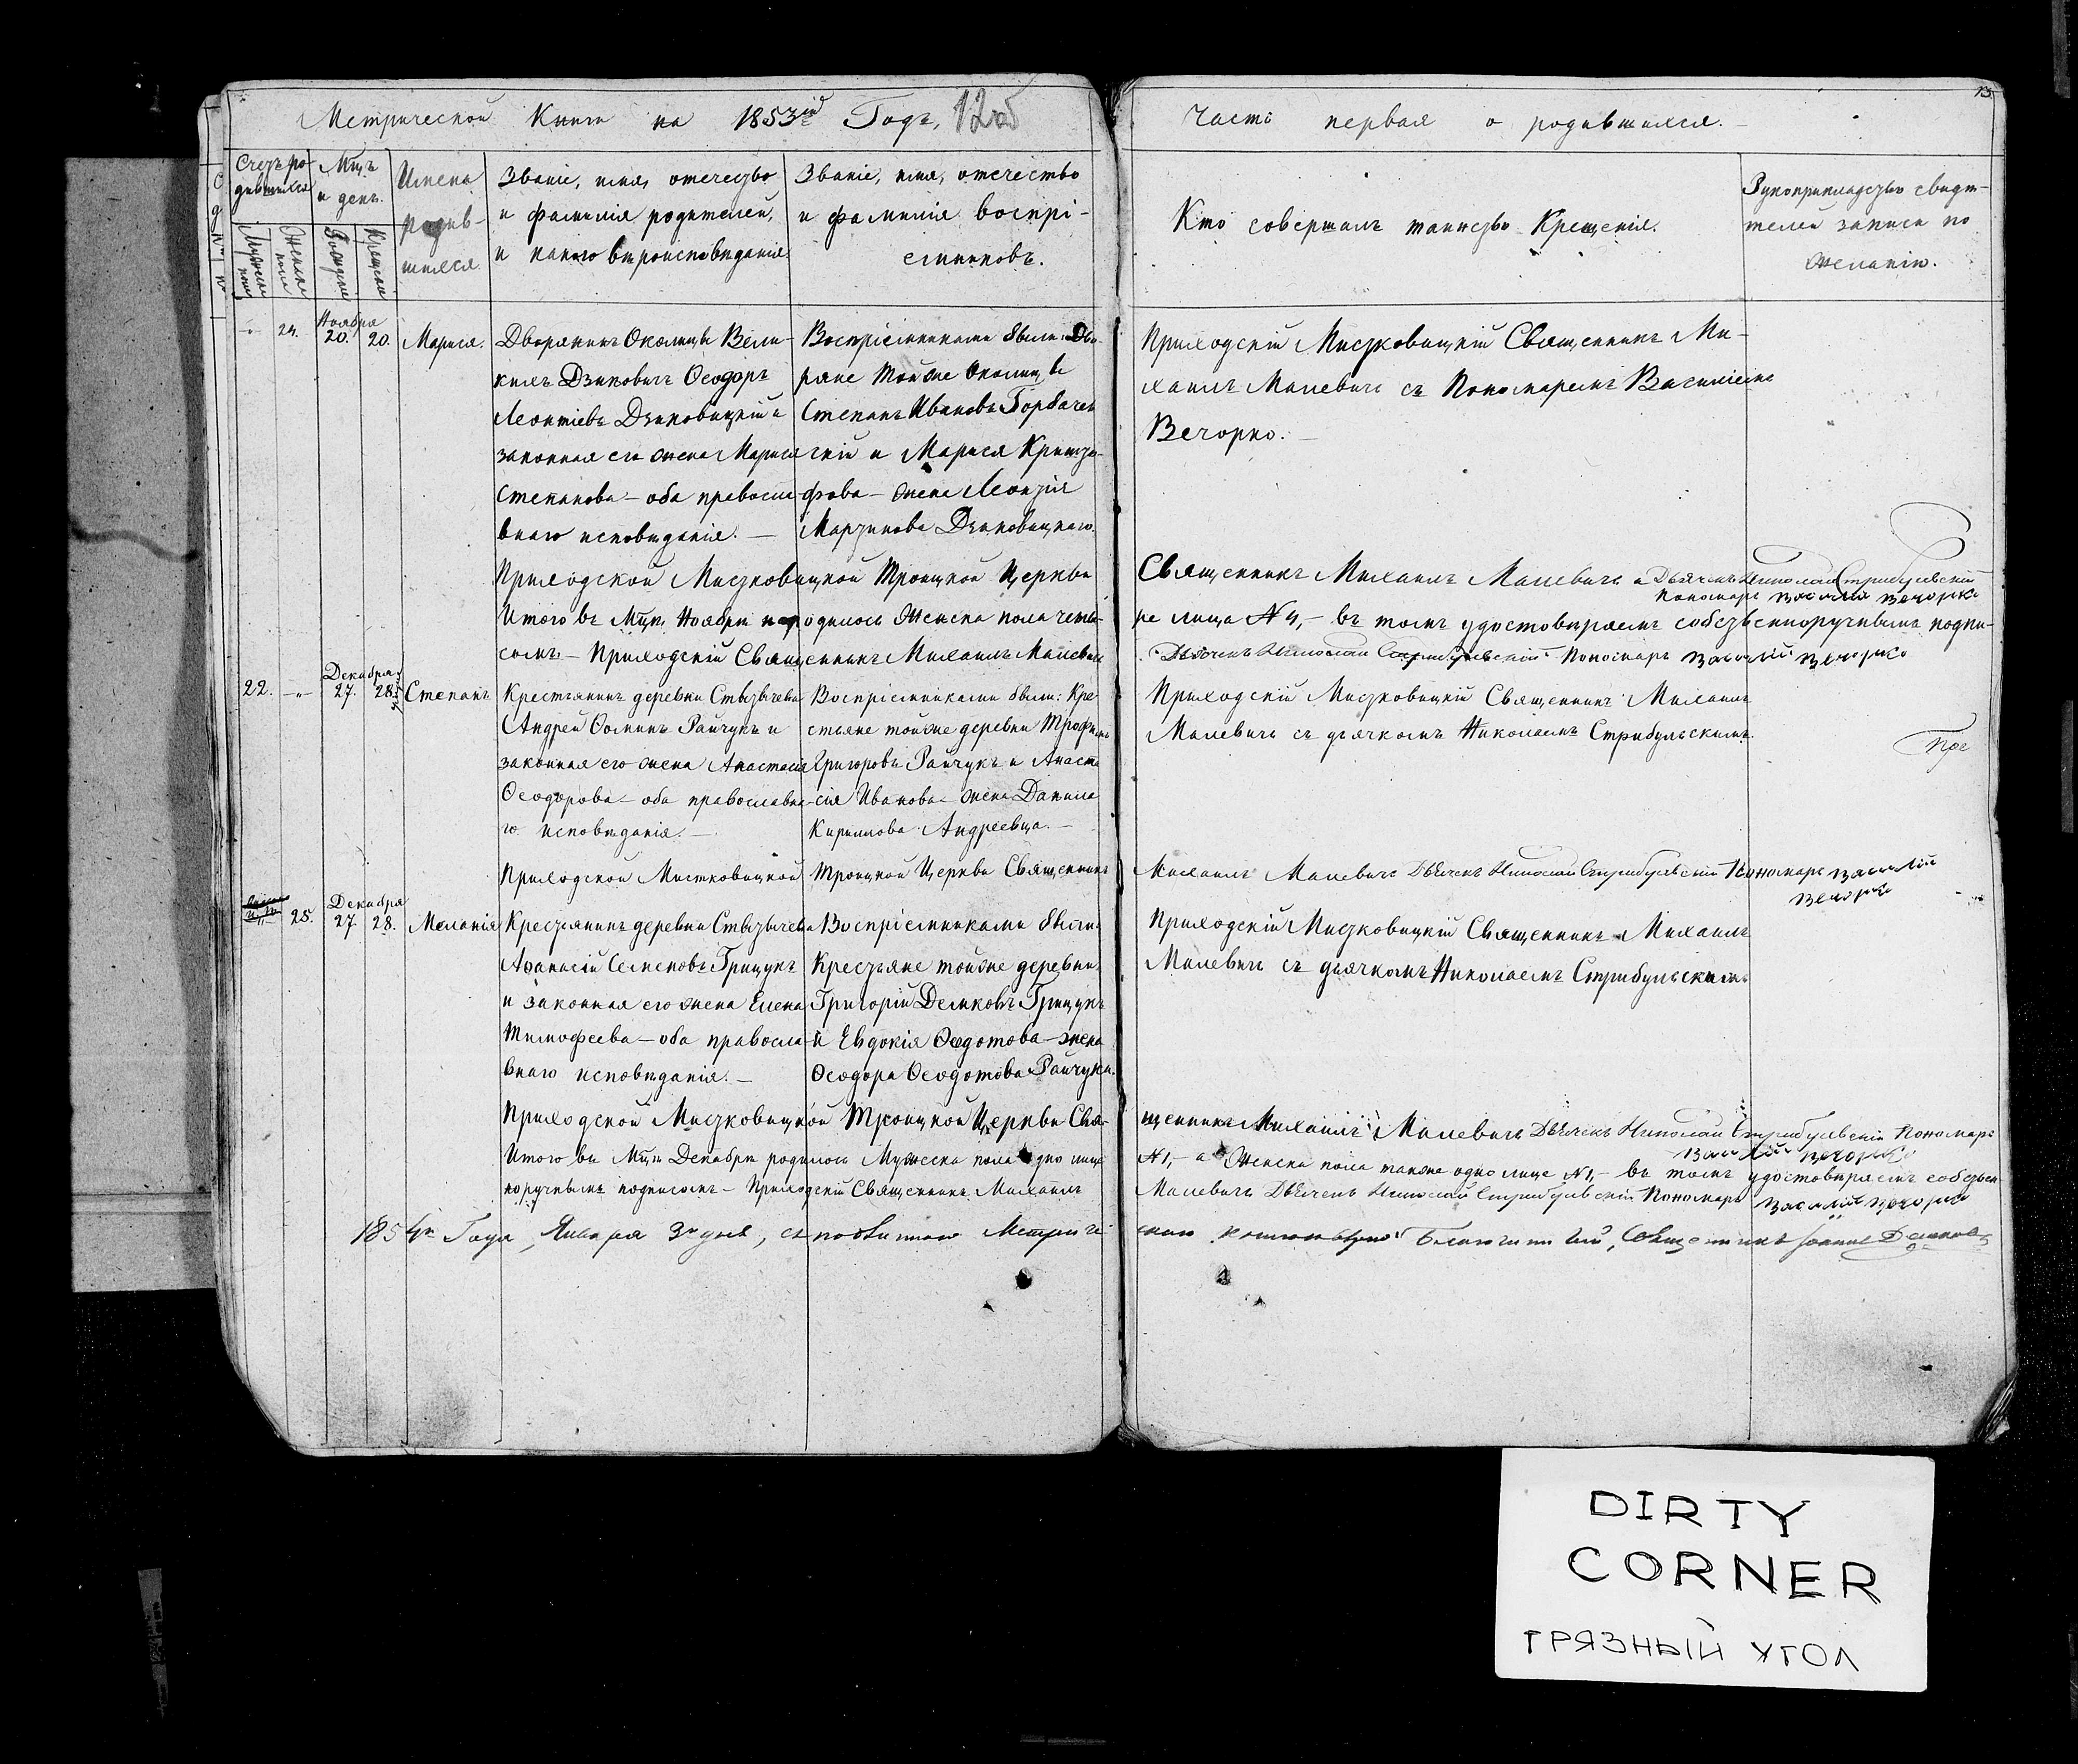 Метрической Книги на 1853й Годъ, 12об
Часть первая о родившихся.
13
Счетъ ро-
дившихся
Мцъ
и день.
Имена
родив-
шихся.
Званіе, имя, отечество
и фамилія родителей,
и какого вѣроисповѣданія.
Званіе, имя, отечество
и фамилія воспрі-
емниковъ.
Кто совершалъ таинство Крещенія.
Рукоприкладство свидѣ-
телей записи по
желанію.
Мужеска
пола
Женска
пола
Рожденія
Крещенія
24.
Ноября
20. 20.
Марися.
Дворянинъ Околицы Вели-
кихъ Дзиковичъ Ѳеодоръ
Леонтіевъ Дзиковицкій и
законная его жена Марися
Степанова – оба правосла-
внаго исповѣданія. –
Воспріемниками были: Дво-
ряне тойже Околицы
Степанъ Ивановъ Горбачев
скій и Марися Кришто-
фова – жена Леонтія
Мартинова Дзиковицкаго.
Приходскій Мистковицкій Священникъ Ми-
хаилъ Малевичъ съ Пономаремъ Василіемъ
Вечорко. –
Приходской Мистковицкой Троицкой Церкви
Священникъ Михаилъ Малевичъ Дьячекъ Николай Стрибульскій
Пономарь Василій Вечорко
Итого въ Мцѣ Ноябрѣ родилось Женска пола четы-
ре лица №4, – въ томъ удостовѣряемъ собственноручнымъ подпи-
сомъ – Приходскій Священникъ Михаилъ Малевичъ
Дьячекъ Николай Стрибульскій Пономарь Василій Вечорко
22.
Декабря
27. 28.
Степанъ
Крестьянинъ деревни Ставычева
Андрей Ѳоминъ Райчукъ и
законная его жена Анастасія
Ѳеодорова – оба православна-
го исповѣданія. –
Воспріемниками были: Кре
стьяне тойже деревни Трофимъ
Григоровъ Райчукъ и Анаста
сія Иванова – жена Данила
Кириллова Андреевца. –
Приходскій Мистковицкій Священникъ Михаилъ
Малевичъ съ дьячкомъ Николаемъ Стрибульскимъ.
Приходской Мистковицкой Троицкой Церкви Священникъ
Михаилъ Малевичъ Дьячекъ Николай Стрибульскій Пономарь Василій
Вечорко
25.
Декабря
27. 28.
Меланія
Крестьянинъ деревни Ставычева
Аѳанасій Семеновъ Грицукъ
и законная его жена Елена
Тимофеева – оба правосла-
внаго исповѣданія. –
Воспріемниками были:
Крестьяне тойже деревни
Григорій Демковъ Грицукъ
и Евдокія Ѳедотова – жена
Ѳеодора Ѳеодотова Райчука.
Приходскій Мистковицкій Священникъ Михаилъ
Малевичъ съ дьячкомъ Николаемъ Стрибульскимъ
Приходской Мистковицкой Троицкой Церкви Свя-
щенникъ Михаилъ Малевичъ Дьячекъ Николай Стрибульскій Пономарь
Василій Вечорко
Итого въ Мцѣ Декабрѣ родилось Мужеска пола одно лице
№1, – а Женска пола также одно лице №1, – въ томъ удостовѣряемъ собствен
норучнымъ подписомъ – Приходскій Священникъ Михаилъ
Малевичъ Дьячекъ Николай Стрибульскій Пономарь Василій Вечорко
1854го Года, Января 3го дня, Метриче
Благочинный, Священникъ
DIRTY
CORNER
ГРЯЗНЫЙ УГОЛ